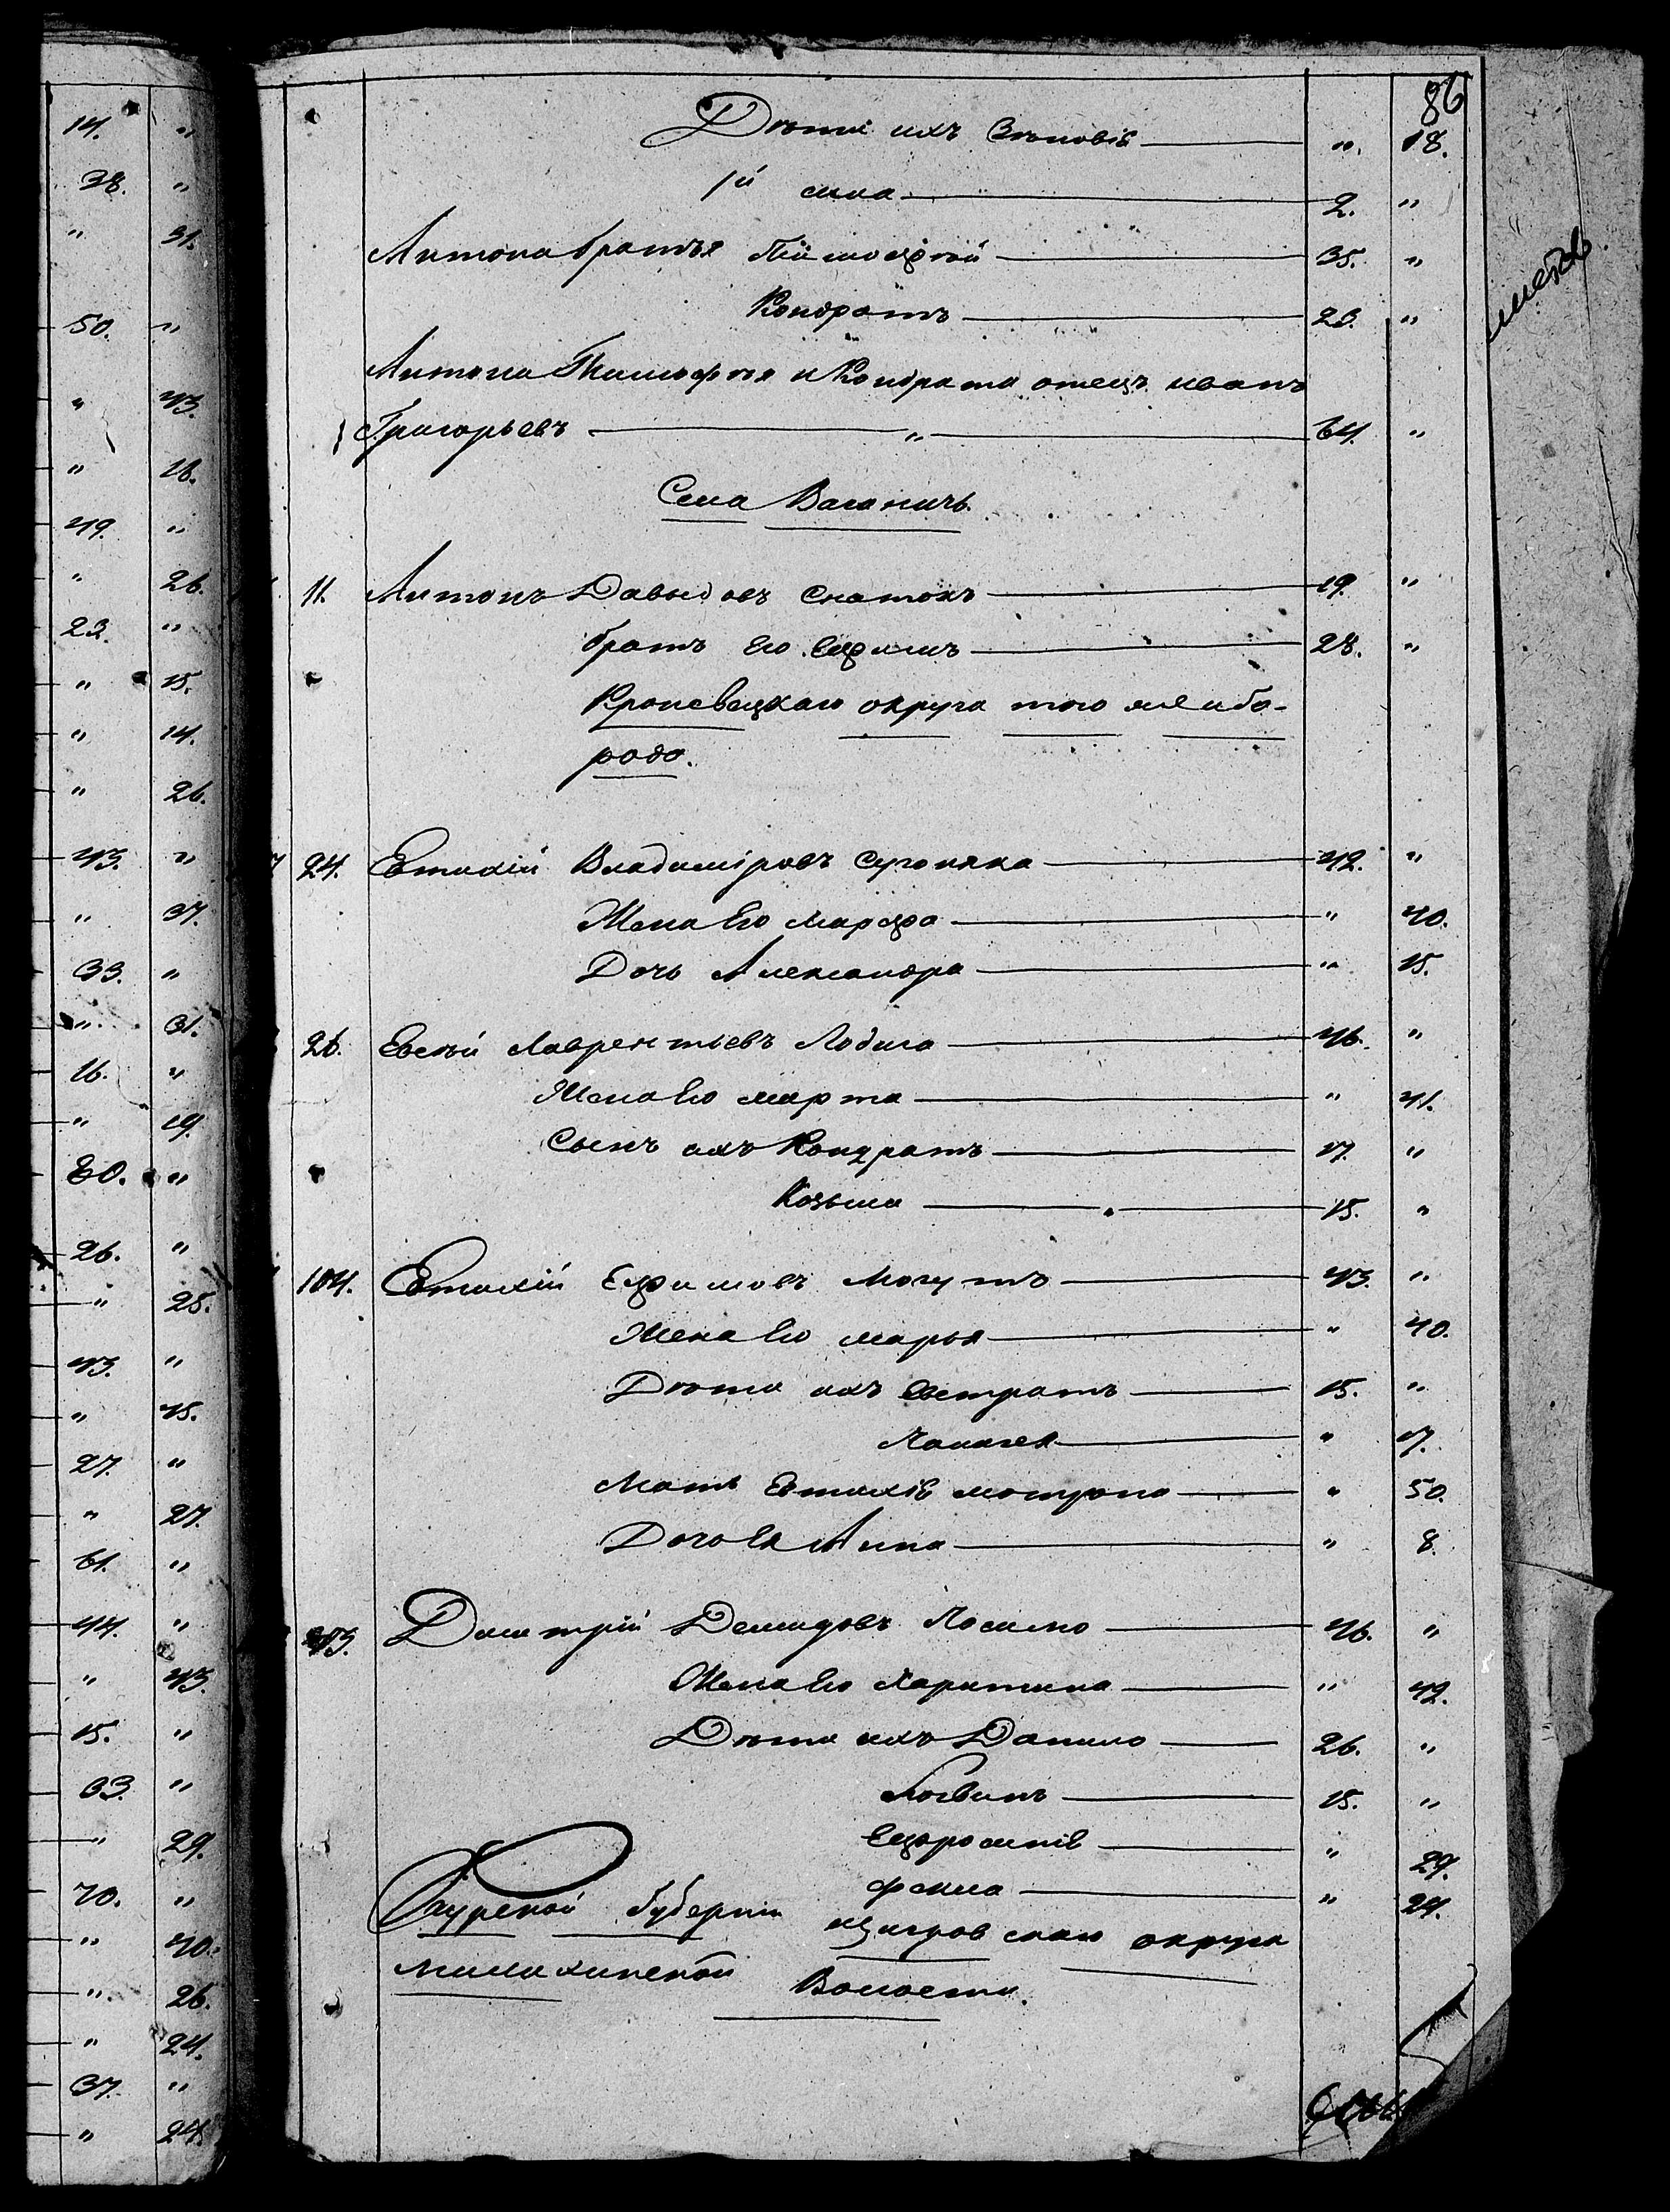 14. "
38. "
" 31.
50. "
" 43.
" 18.
49. "
" 26.
23. "
" 15.
" 14.
" 26.
43. "
" 37.
33. "
" 31.
16. "
" 19.
80. "
26. "
" 25.
43. "
" 45.
27. "
" 27.
61. "
44. "
" 43.
15. "
33. "
" 29.
70. "
" 40.
" 26.
" 24.
37. "
" 24.
86
Дѣти ихъ Зѣновія " 18.
1й сына 2. "
Антона братья Тимофѣй 35. "
Кондратъ 23. "
Антона Тимофѣя и Кондрата отецъ иванъ
Григорьевъ " 64. "
Села
11. Антонъ Давыдовъ 19. "
братъ Его Ефимъ 28. "
Кролевецкаго округа того же на бо-
рода.
24. Евтихій Владиміровъ Сугоняка 42. "
Жена Его марфа " 40.
Дочь Александра " 15.
26. Евсѣй Лаврентьевъ Лодыга 46. "
Жена Его марта " 41.
Сынъ ихъ Кондратъ 17. "
Козьма " 15. "
104. Евтихій Ефимовъ Могутъ 43. "
Жена Его марья " 40.
Дѣти ихъ Евстратъ 15. "
Палагея " 17.
Мать Евтихія мотрона " 50.
Дочь Ея Анна " 8.
43. Дмитрій Демидовъ 46. "
Жена Его Харитина " 42.
Дѣти ихъ Данило 26. "
Логвинъ 15. "
Ефросинія " 29.
фекла " 24.
Курской Губерніи Щигровскаго округа
Волости.